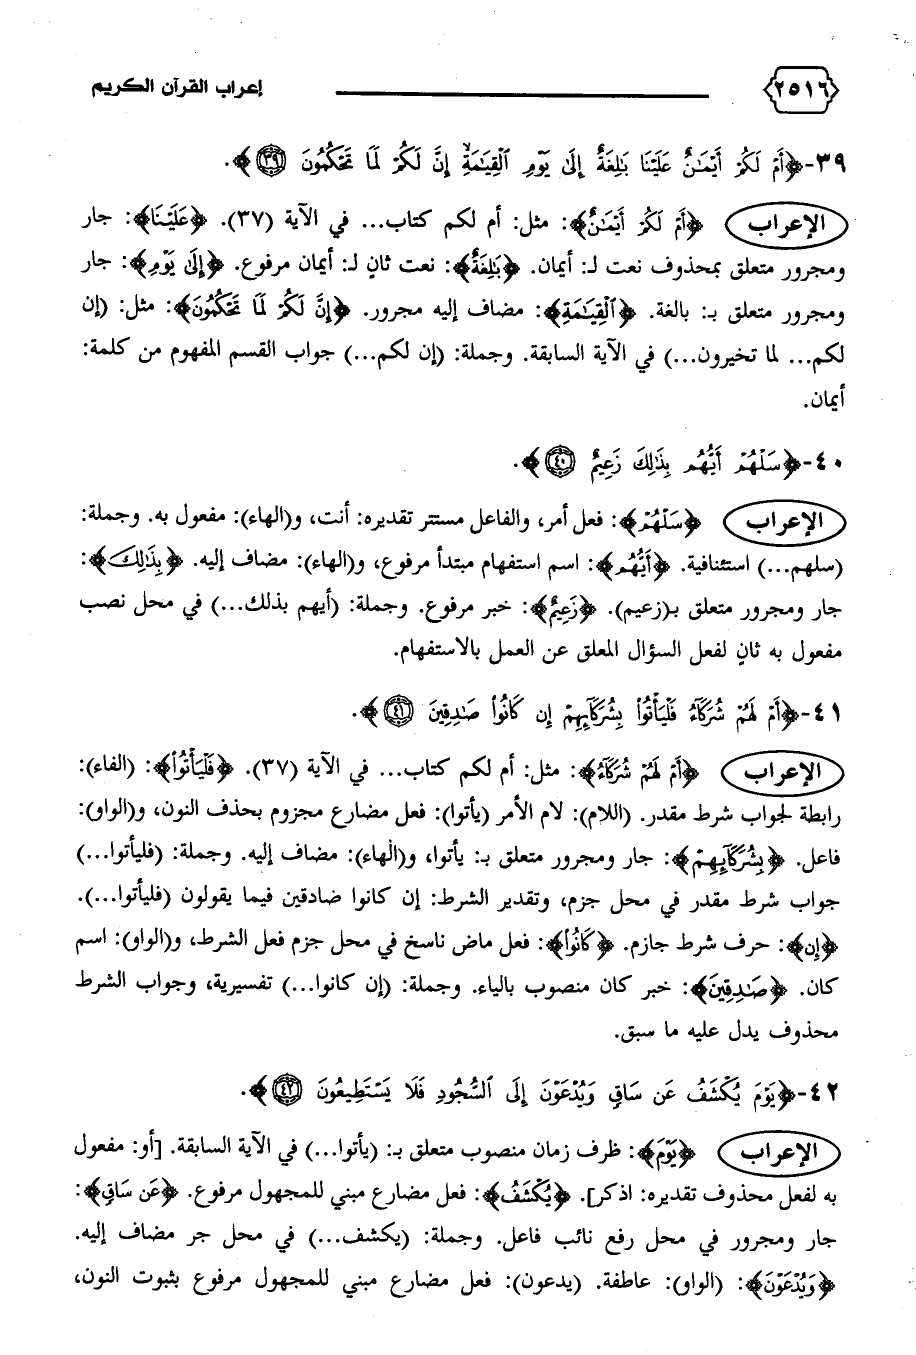 ٢٥١٦ إعراب القرآن الكريم
٣٩-﴿أَمْ لَكُمْ أَيْمَـٰنٌ عَلَيْنَا بَـٰلِغَةٌ إِلَىٰ يَوْمِ ٱلْقِيَـٰمَةِ ۙ إِنَّ لَكُمْ لَمَا تَحْكُمُونَ ٣٩﴾.
الإعراب ﴿أَمْ لَكُمْ أَيْمَـٰنٌ﴾: مثل: أم لكم كتاب... في الآية (٣٧). ﴿عَلَيْنَا﴾: جار
ومجرور متعلق بمحذوف نعت لـ: أيمان. ﴿بَـٰلِغَةٌ﴾: نعت ثانٍ لـ: أيمان مرفوع. ﴿إِلَىٰ يَوْمِ﴾: جار
ومجرور متعلق بـ: بالغة. ﴿ٱلْقِيَـٰمَةِ﴾: مضاف إليه مجرور. ﴿إِنَّ لَكُمْ لَمَا تَحْكُمُونَ﴾: مثل: (إن
لكم... لما تخيرون...) في الآية السابقة. وجملة: (إن لكم...) جواب القسم المفهوم من كلمة:
أيمان.
٤٠-﴿سَلْهُمْ أَيُّهُم بِذَٰلِكَ زَعِيمٌ ٤٠﴾.
الإعراب ﴿سَلْهُمْ﴾: فعل أمر، والفاعل مستتر تقديره: أنت، و(الهاء): مفعول به. وجملة:
(سلهم...) استئنافية. ﴿أَيُّهُم﴾: اسم استفهام مبتدأ مرفوع، و(الهاء): مضاف إليه. ﴿بِذَٰلِكَ﴾:
جار ومجرور متعلق بـ(زعيم). ﴿زَعِيمٌ﴾: خبر مرفوع. وجملة: (أيهم بذلك...) في محل نصب
مفعول به ثانٍ لفعل السؤال المعلق عن العمل بالاستفهام.
٤١-﴿أَمْ لَهُمْ شُرَكَآءُ فَلْيَأْتُوا۟ بِشُرَكَآئِهِمْ إِن كَانُوا۟ صَـٰدِقِينَ ٤١﴾.
الإعراب ﴿أَمْ لَهُمْ شُرَكَآءُ﴾: مثل: أم لكم كتاب... في الآية (٣٧). ﴿فَلْيَأْتُوا۟﴾: (الفاء):
رابطة لجواب شرط مقدر. (اللام): لام الأمر (يأتوا): فعل مضارع مجزوم بحذف النون، و(الواو):
فاعل. ﴿بِشُرَكَآئِهِمْ﴾: جار ومجرور متعلق بـ: يأتوا، و(الهاء): مضاف إليه. وجملة: (فليأتوا...)
جواب شرط مقدر في محل جزم، وتقدير الشرط: إن كانوا ضادقين فيما يقولون (فليأتوا...).
﴿إِن﴾: حرف شرط جازم. ﴿كَانُوا۟﴾: فعل ماض ناسخ في محل جزم فعل الشرط، و(الواو): اسم
كان. ﴿صَـٰدِقِينَ﴾: خبر كان منصوب بالياء. وجملة: (إن كانوا...) تفسيرية، وجواب الشرط
محذوف يدل عليه ما سبق.
٤٢-﴿يَوْمَ يُكْشَفُ عَن سَاقٍ وَيُدْعَوْنَ إِلَى ٱلسُّجُودِ فَلَا يَسْتَطِيعُونَ ٤٢﴾.
الإعراب ﴿يَوْمَ﴾: ظرف زمان منصوب متعلق بـ: (يأتوا...) في الآية السابقة. [أو: مفعول
به لفعل محذوف تقديره: اذكر]. ﴿يُكْشَفُ﴾: فعل مضارع مبني للمجهول مرفوع. ﴿عَن سَاقٍ﴾:
جار ومجرور في محل رفع نائب فاعل. وجملة: (يكشف...) في محل جر مضاف إليه.
﴿وَيُدْعَوْنَ﴾: (الواو): عاطفة. (يدعون): فعل مضارع مبني للمجهول مرفوع بثبوت النون،